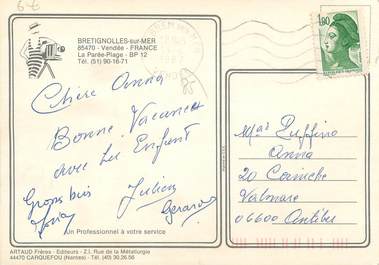 6€
BRETIGNOLLES-sur-MER
85470 - Vendée - FRANCE
La Parée-Plage - BP 12
Tél. (51) 90-16-71
1,90
Chère Anna
Bonne Vacances
avec les Enfant
Gros bis
Julien
Gérard
un Professionnel à votre service
Puffino
Anna
20
Valmare
06600 Antibes
ARTAUD Frères - Editeurs - Z.I. Rue de la Métallurgie
44470 CARQUEFOU (Nantes) - Tél. (40) 30.26.56